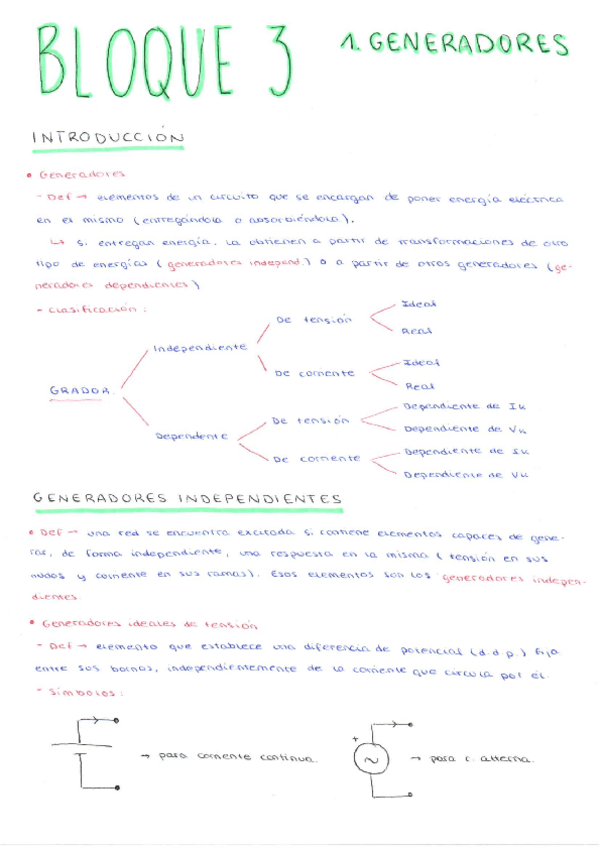 BLOQUE 3
1. GENERADORES
INTRODUCCIÓN
• Generadores
- Def → elementos de un circuito que se encargan de poner energía eléctrica
en el mismo (entregándola o absorbiéndola).
↳ Si entregan energía, la obtienen a partir de transformaciones de otro
tipo de energías (generadores independ.) o a partir de otros generadores (ge-
neradores dependientes)
- Clasificación:
GRADOR.
Independiente
De tensión
Ideal
Real
De corriente
Ideal
Real
Dependiente
De tensión
Dependiente de Ik
Dependiente de Vk
De corriente
Dependiente de Ik
Dependiente de Vk
GENERADORES INDEPENDIENTES
• Def → una red se encuentra excitada si contiene elementos capaces de gene-
rar, de forma independiente, una respuesta en la misma (tensión en sus
nudos y corriente en sus ramas). Esos elementos son los generadores indepen-
dientes
• Generadores ideales de tensión
- Def → elemento que establece una diferencia de potencial (d.d.p.) fija
entre sus bornas, independientemente de la corriente que circula por él.
- Símbolos:
→ para corriente continua.
+
~
→ para c. alterna.